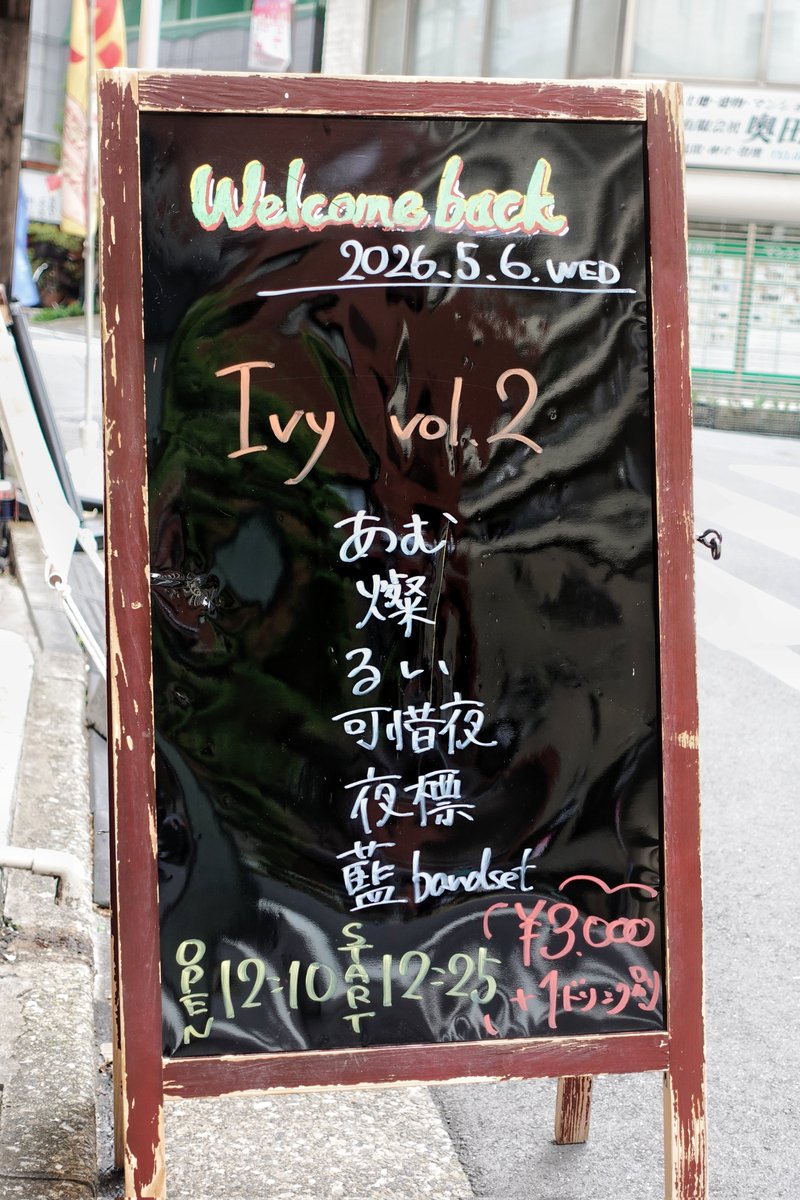 Welcome back
2026.5.6.WED
Ivy vol.2
あむ
燦
るい
可惜夜
夜標
藍 bandset
¥3.000
+1ドリンク
OPEN 12:10 START 12:25
土地・建物・マンション
有限会社 奥田